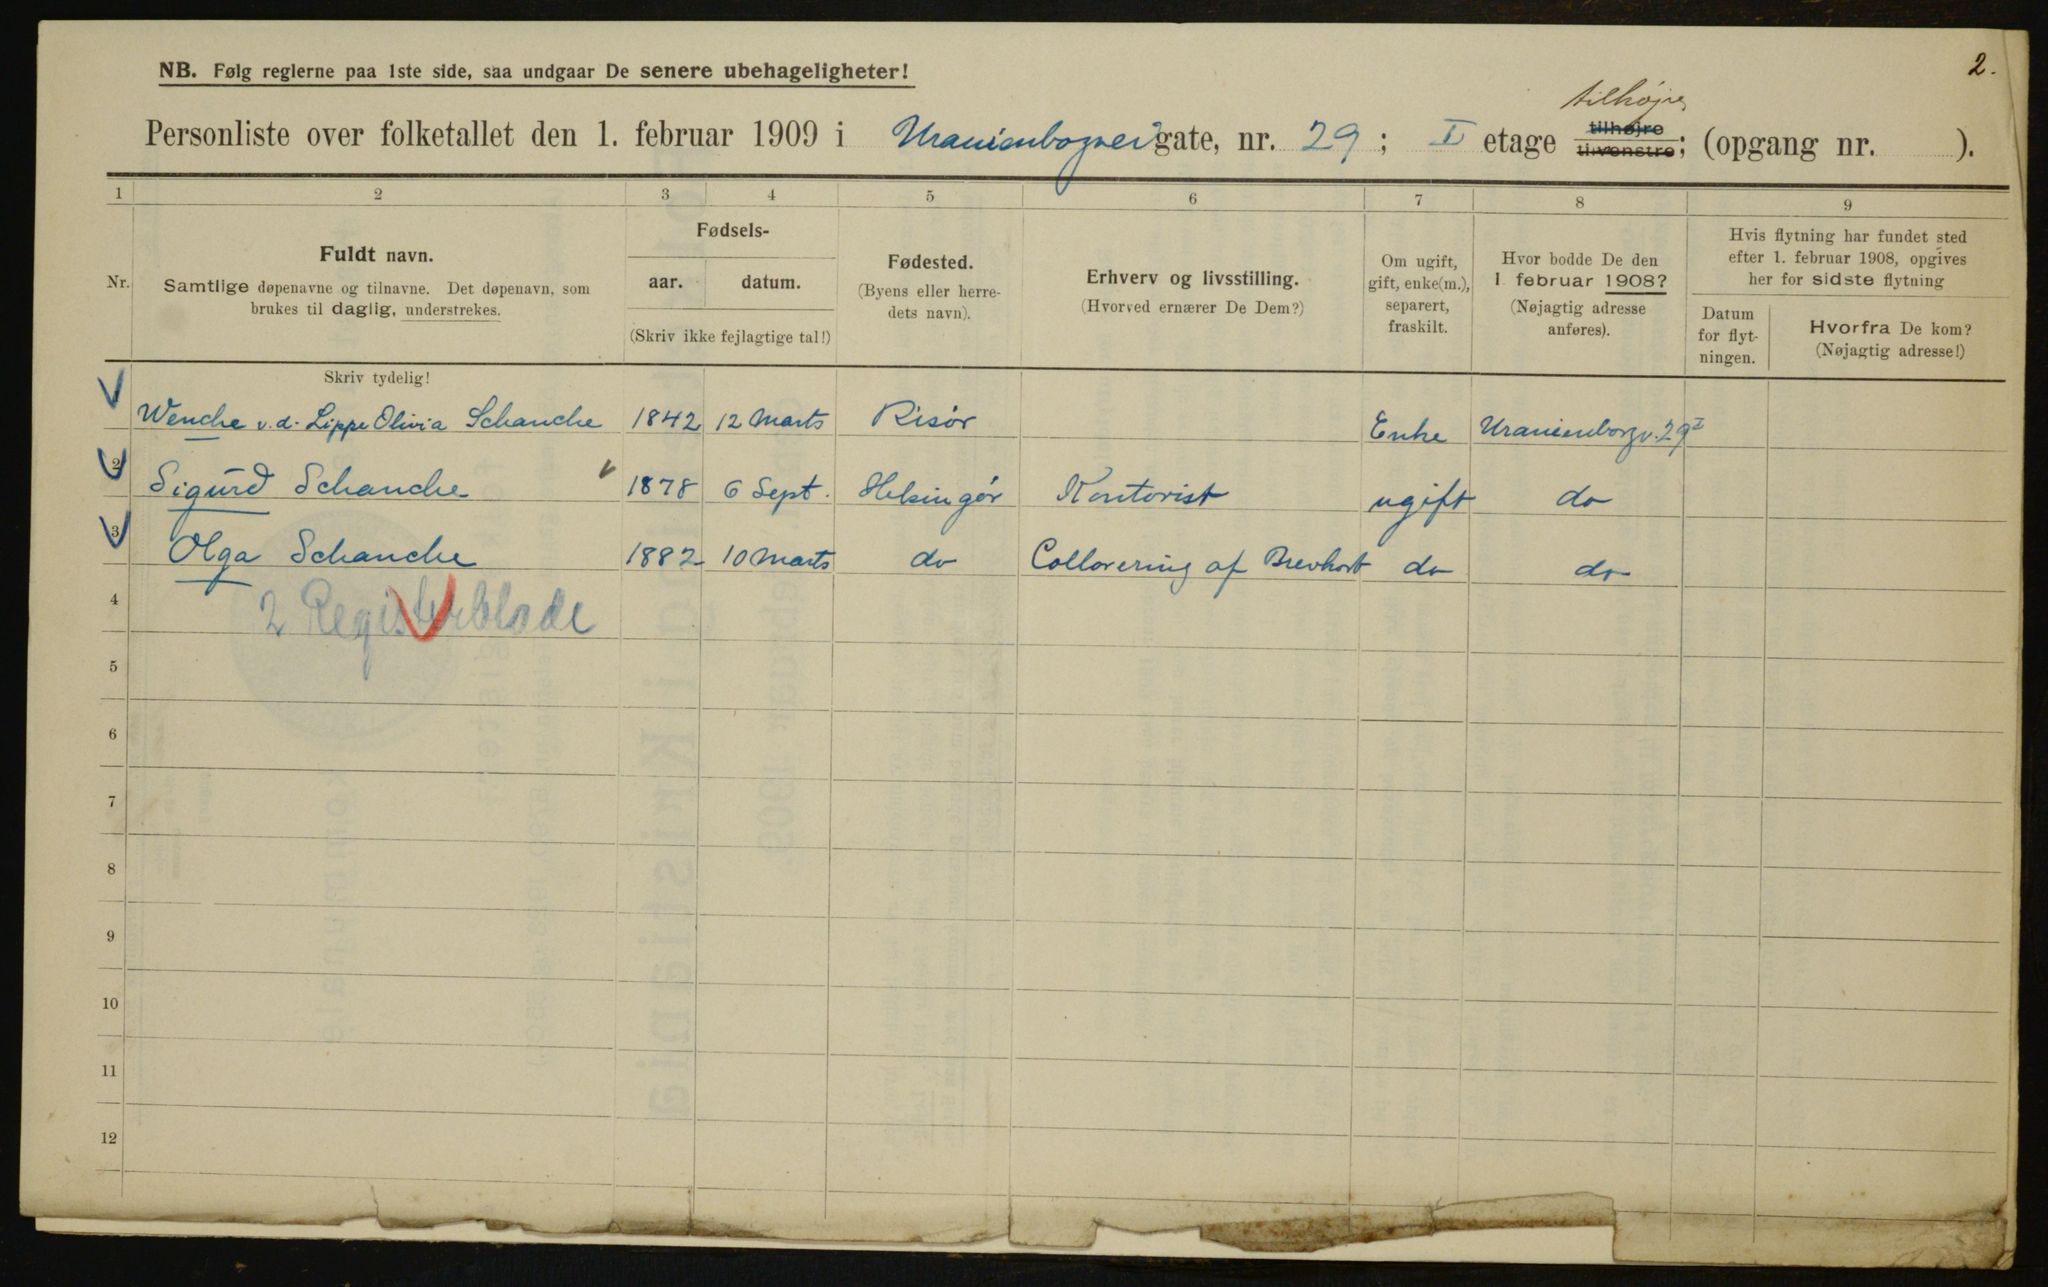 2.
NB. Følg reglerne paa 1ste side, saa undgaar De senere ubehageligheter!
tilhøjre
Personliste over folketallet den 1. februar 1909 i Uranienbogvei gate, nr. 29; I etage tilhøjre tilvenstre; (opgang nr. ).
1 2 3 4 5 6 7 8 9
Nr.
Fuldt navn.
Samtlige døpenavne og tilnavne. Det døpenavn, som
brukes til daglig, understrekes.
Fødsels-
aar. datum.
(Skriv ikke fejlagtige tal!)
Fødested.
(Byens eller herre-
dets navn).
Erhverv og livsstilling.
(Hvorved ernærer De Dem?)
Om ugift,
gift, enke(m.),
separert,
fraskilt.
Hvor bodde De den
1 februar 1908?
(Nøjagtig adresse
anføres).
Hvis flytning har fundet sted
efter 1. februar 1908, opgives
her for sidste flytning
Datum
for flyt-
ningen.
Hvorfra De kom?
(Nøjagtig adresse!)
Skriv tydelig!
Wenche v.d. Lippe Olivia Schanche 1842 12 Marts Risör Enke Uranienborgv. 29 I
2 Sigurd Schanche 1878 6 Sept. Helsingör Kontorist ugift do
3 Olga Schanche 1882 10 Marts do Collorering af Brevkort do do
4 2 Registerblade
5
6
7
8
9
10
11
12